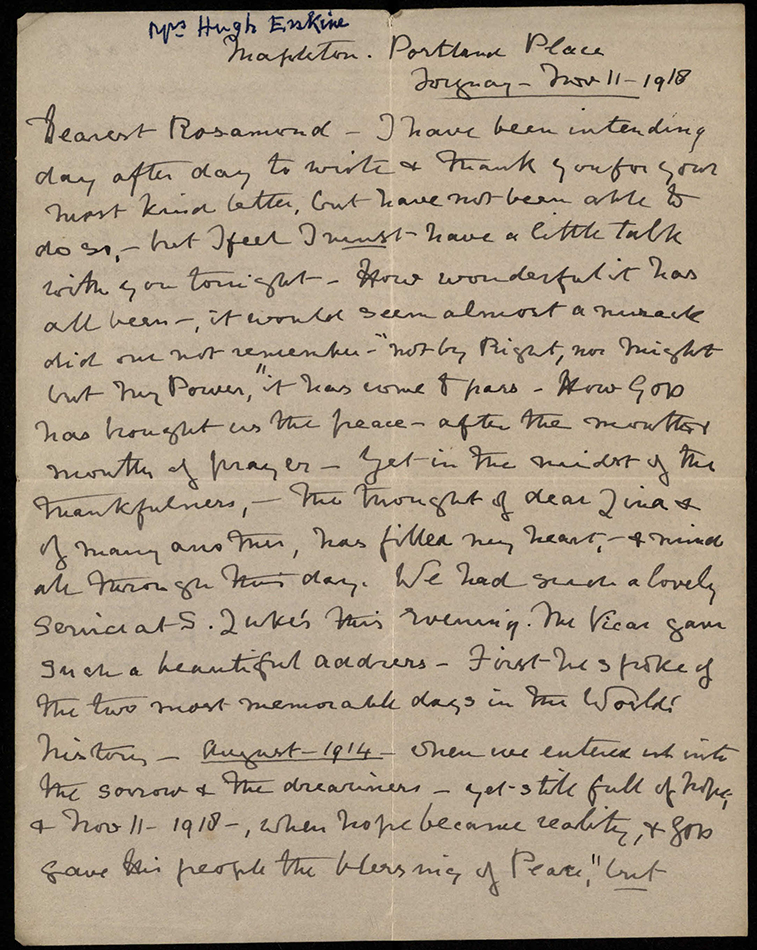 Mrs Hugh Erskine
Mapleton. Portland Place
Torquay - Nov 11 - 1918
Dearest Rosamond - I have been intending
day after day to write & thank you for your
most kind letter, but have not been able to
do so, - but I feel I must have a little talk
with you tonight - How wonderful it has
all been -, it would seem almost a miracle
did one not remember - "not by Right, nor Might
but My Power," it has come to pass - How God
has brought us the peace - after the months &
months of prayer - Yet in the midst of the
thankfulness, - the thought of dear &
of many another, has filled my heart, - & mind
all through this day. We had such a lovely
Service at S. Luke's this Evening. The Vicar gave
such a beautiful address - First he spoke of
the two most memorable days in the World's
history - August - 1914 - when we entered into
the sorrow & the dreariness - yet still full of hope,
& Nov 11 - 1918 -, when hope became reality, & God
gave His people the blessing of Peace," but